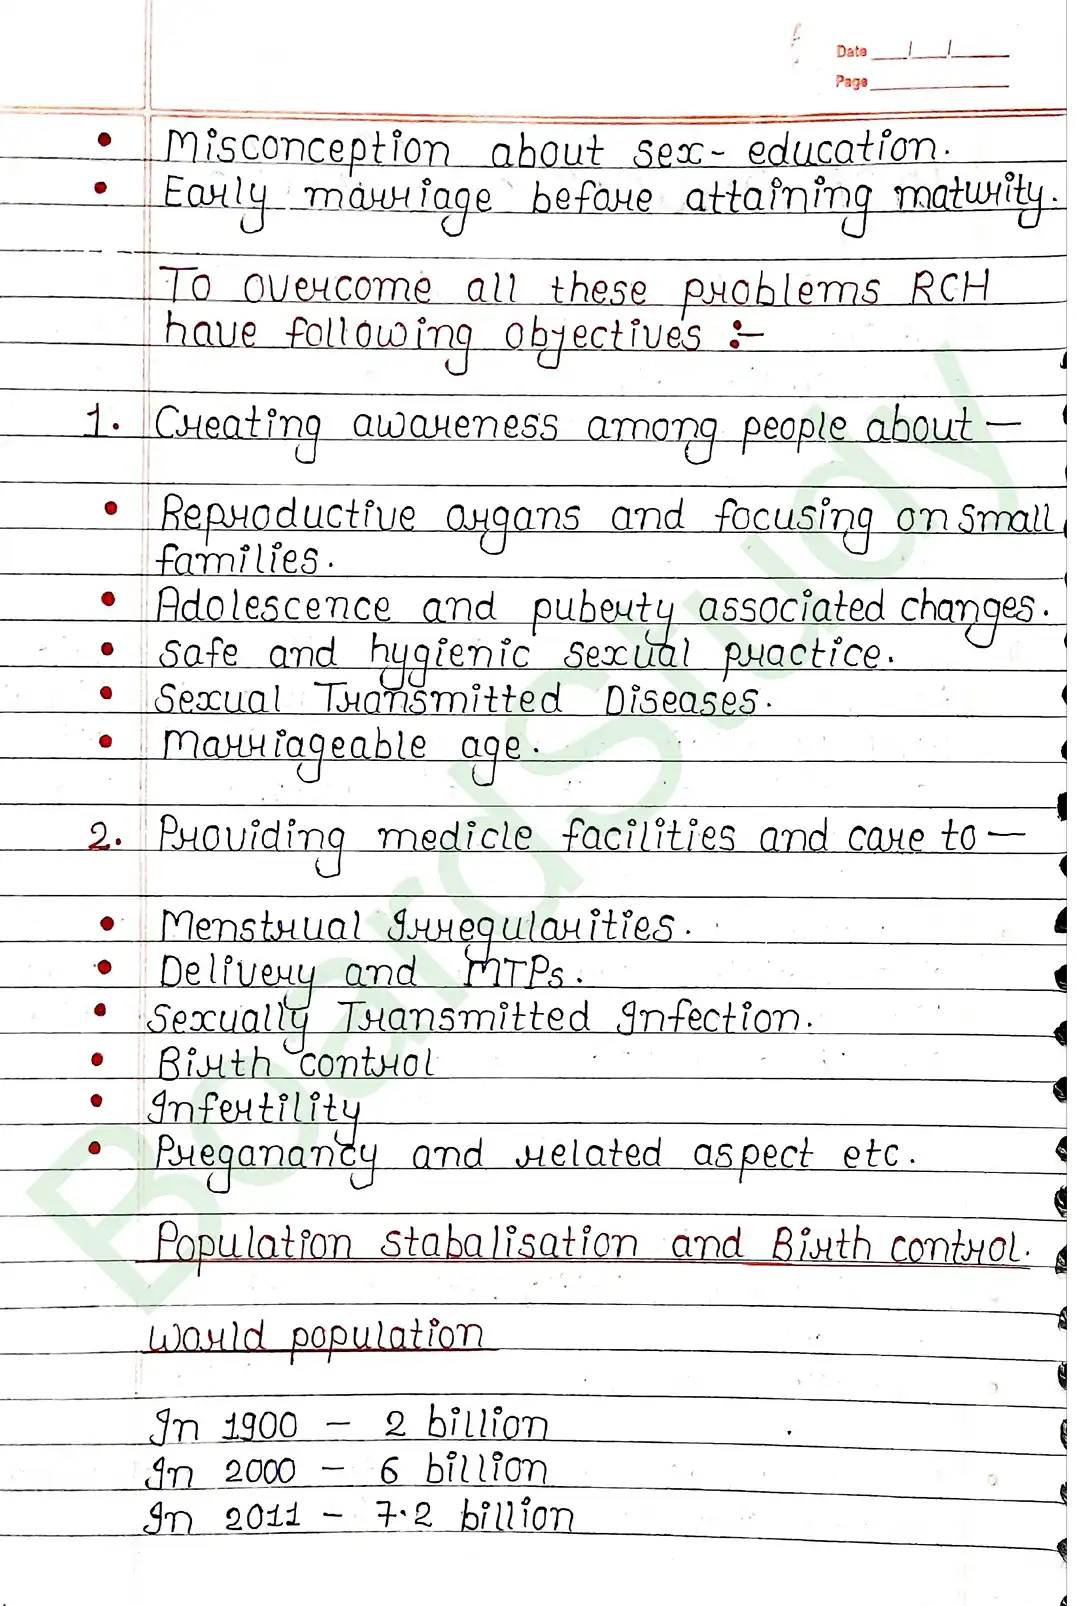 Date __/__/____
Page __________
• Misconception about sex-education.
• Early marriage before attaining maturity.
To overcome all these problems RCH
have following objectives :-
1. Creating awareness among people about —
• Reproductive organs and focusing on small
families.
• Adolescence and puberty associated changes.
• Safe and hygienic sexual practice.
• Sexual Transmitted Diseases.
• Marriageable age.
2. Providing medicle facilities and care to —
• Menstrual Irregularities.
• Delivery and MTPs.
• Sexually Transmitted Infection.
• Birth control
• Infertility
• Preganancy and related aspect etc.
Population stabalisation and Birth control.
World population
In 1900 — 2 billion
In 2000 — 6 billion
In 2011 - 7.2 billion
BoardStudy